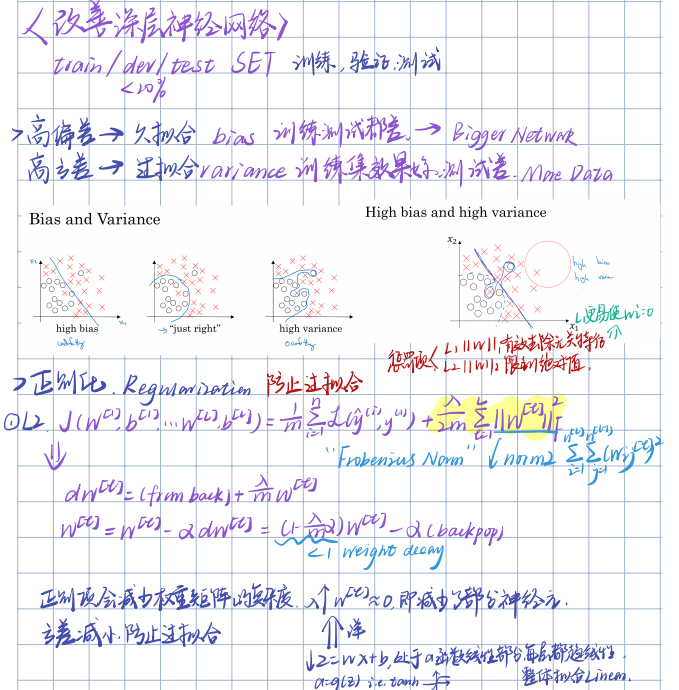 《改善深层神经网络》
train/dev/test SET 训练,验证,测试
<20%
>高偏差→欠拟合 bias 训练测试都差.→ Bigger Network
高方差→过拟合variance 训练集效果好,测试差. More Data
Bias and Variance
High bias and high variance
x₁
x₁
high bias
"just right"
high variance
underfitting
overfitting
x₂
x₁
high bias
high varian
L1更易使wi=0
惩罚项 L1 ||w||1 有效去除无关特征
L2 ||w||2 限制绝对值.
>正则化. Regularization 防止过拟合
①L2. J(W^[1],b^[1],...W^[L],b^[L])=1/m Σ_{i=1}^{m} L(ŷ^(i),y^(i)) + λ/2m Σ_{l=1}^{L} ||W^[l]||²_F
"Frobenius Norm" norm2 Σ_{i=1}^{n^[l]} Σ_{j=1}^{n^[l-1]} (Wij^[l])²
dW^[l]=(from back)+λ/m W^[l]
W^[l]=W^[l]-αdW^[l]=(1-λ/m α)W^[l]-α(backpop)
<1 weight decay
正则项会减少权重矩阵的复杂度. λ↑ W^[l]≈0,即减少了部分神经元.
方差减小,防止过拟合
⇑详
↓z=wx+b,处于a函数线性部分,每层都趋线性.
a=g(z) i.e.tanh
整体拟合Linear.